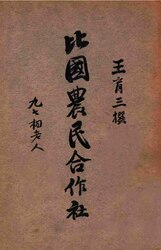 王育三撰
比國農民合作社
九七相老人